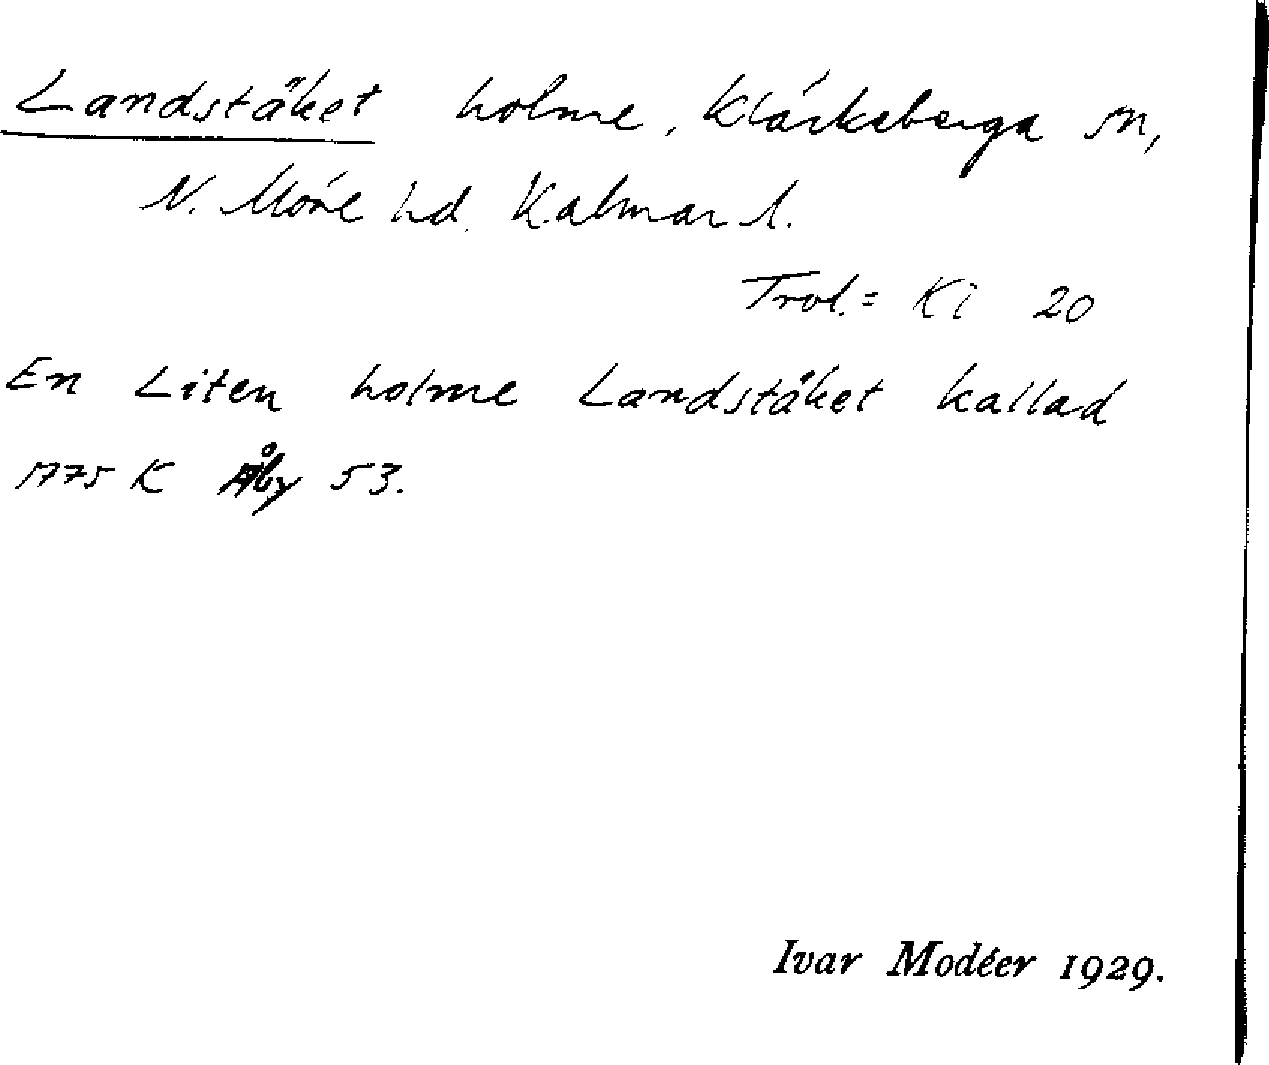 Landstäket holme, Kläckeberga sn,
N. Möre hd. Kalmar l.
Trol. = Ki 20
En Liten holme Landstäket kallad
1775 K Åby 53.
Ivar Modéer 1929.